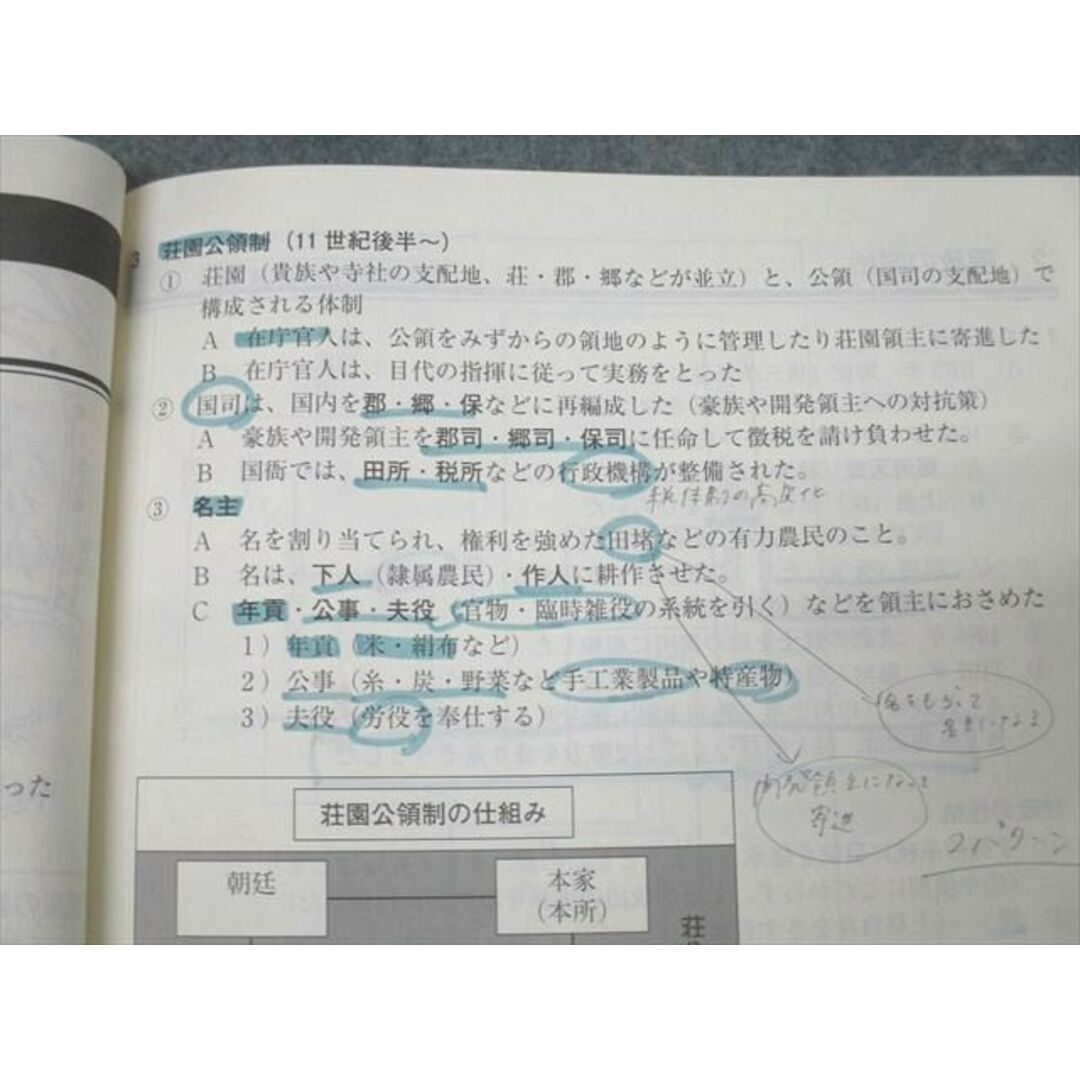 3 荘園公領制（11世紀後半～）
① 荘園（貴族や寺社の支配地、荘・郡・郷などが並立）と、公領（国司の支配地）で
構成される体制
A 在庁官人は、公領をみずからの領地のように管理したり荘園領主に寄進した
B 在庁官人は、目代の指揮に従って実務をとった
② 国司は、国内を郡・郷・保などに再編成した（豪族や開発領主への対抗策）
A 豪族や開発領主を郡司・郷司・保司に任命して徴税を請け負わせた。
B 国衙では、田所・税所などの行政機構が整備された。
③ 名主
A 名を割り当てられ、権利を強めた田堵などの有力農民のこと。
B 名は、下人（隷属農民）・作人に耕作させた。
C 年貢・公事・夫役（官物・臨時雑役の系統を引く）などを領主におさめた
1）年貢（米・絹布など）
2）公事（糸・炭・野菜など手工業製品や特産物）
3）夫役（労役を奉仕する）
名をもらって
名主になる
開発領主になって
寄進
2パターン
った
荘園公領制の仕組み
朝廷
本家
（本所）
荘